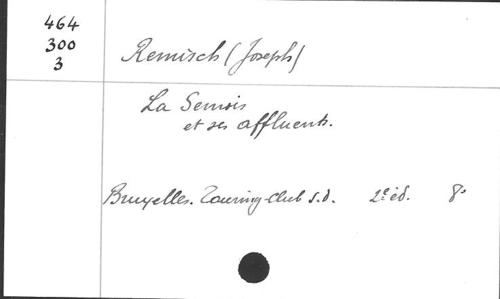 464
300
3
Remisch (Joseph)
La Semois
et ses affluents.
Bruxelles. Touring-Club s.d. 2e éd. 8°